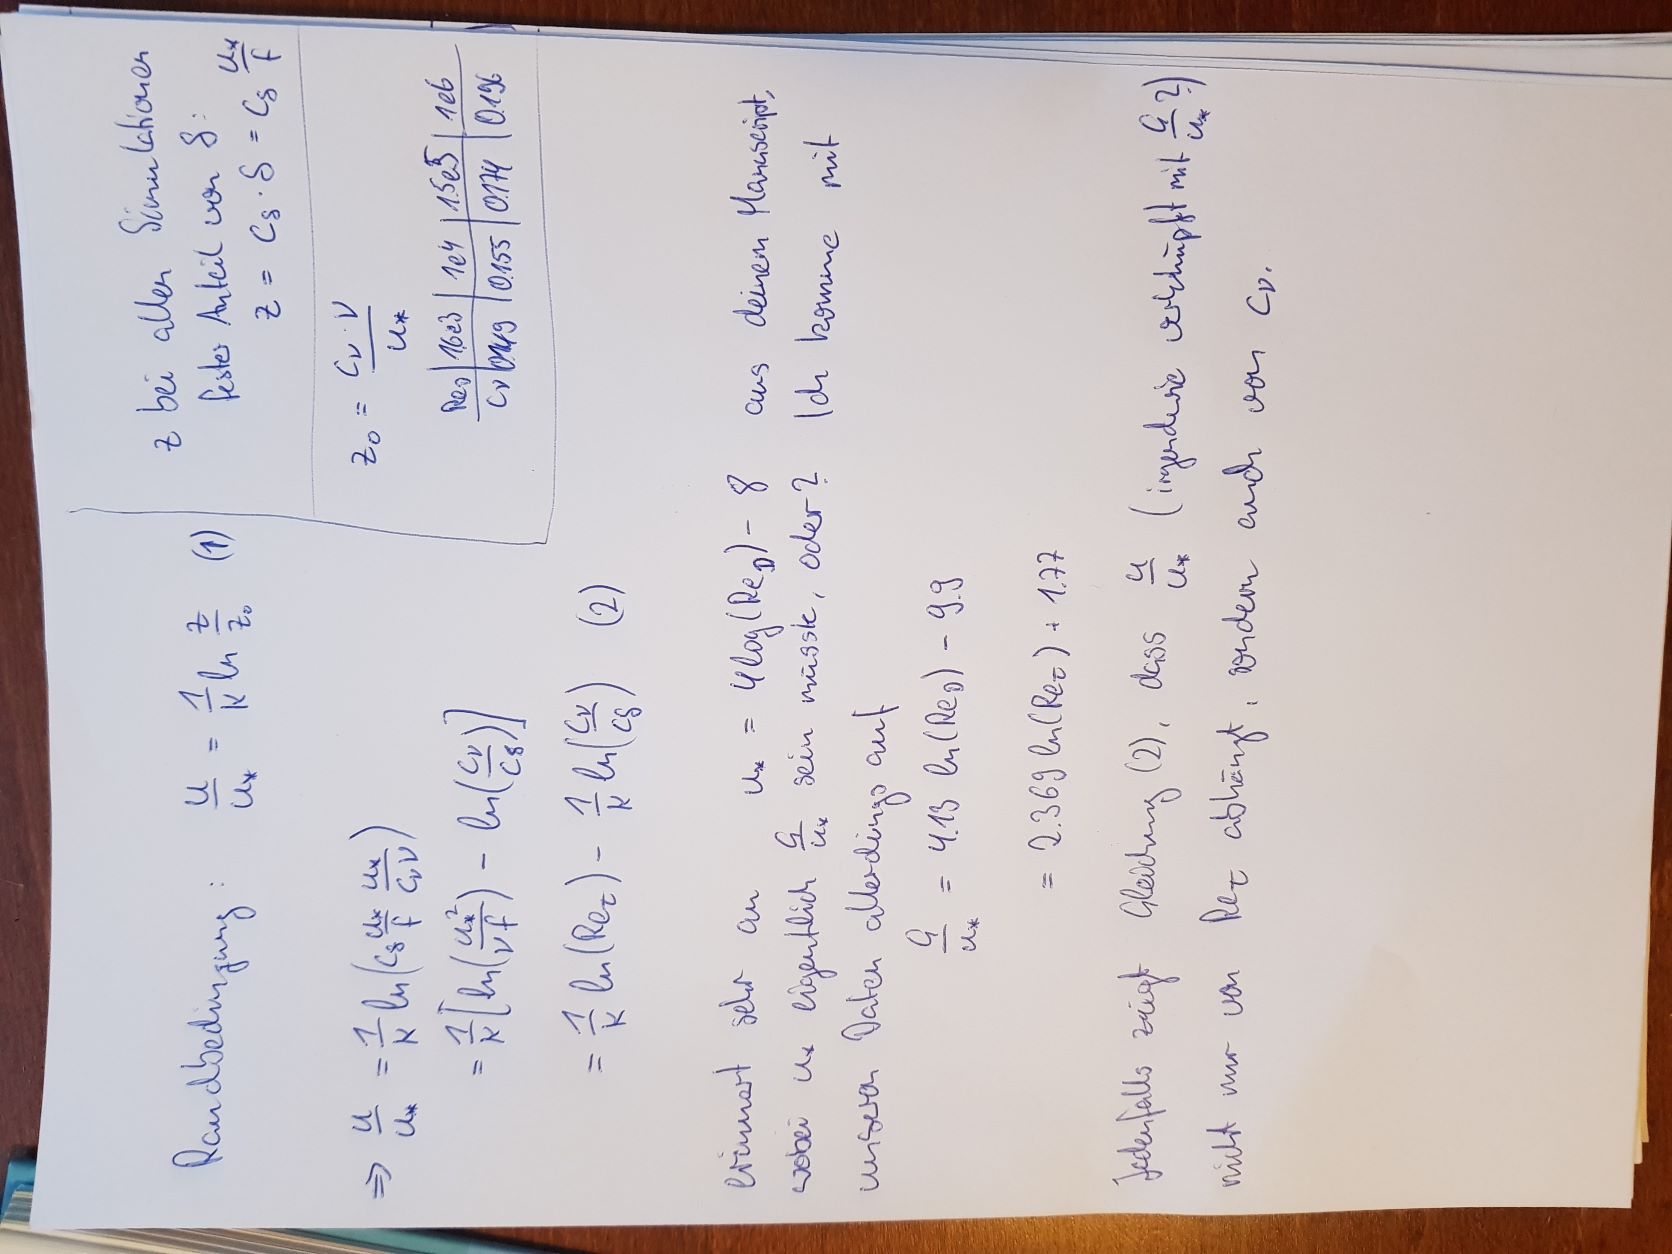 Randbedingung: u/u* = 1/κ ln z/z₀ (1)
z bei allen Simulationen
fester Anteil von δ:
z = C_δ · δ = C_δ u*/f
z₀ = C_ν · ν / u*
Re_D | 1.6e3 | 1e4 | 1.5e5 | 1e6
C_ν | 0.149 | 0.155 | 0.174 | 0.196
⇒ u/u* = 1/κ ln(C_δ u*/f u*/(C_ν ν))
= 1/κ [ln(u*²/(ν f)) - ln(C_ν/C_δ)]
= 1/κ ln(Re_τ) - 1/κ ln(C_ν/C_δ) (2)
erinnert sehr an u* = 4 log(Re_D) - 8 aus deinem Manuscript,
wobei u* eigentlich G/u* sein müsste, oder? Ich komme mit
unseren Daten allerdings auf
G/u* = 4.13 ln(Re_D) - 9.9
= 2.369 ln(Re_τ) + 1.77
Jedenfalls zeigt Gleichung (2), dass u/u* (irgendwie verknüpft mit G/u*?)
nicht nur von Re_τ abhängt, sondern auch von C_ν.